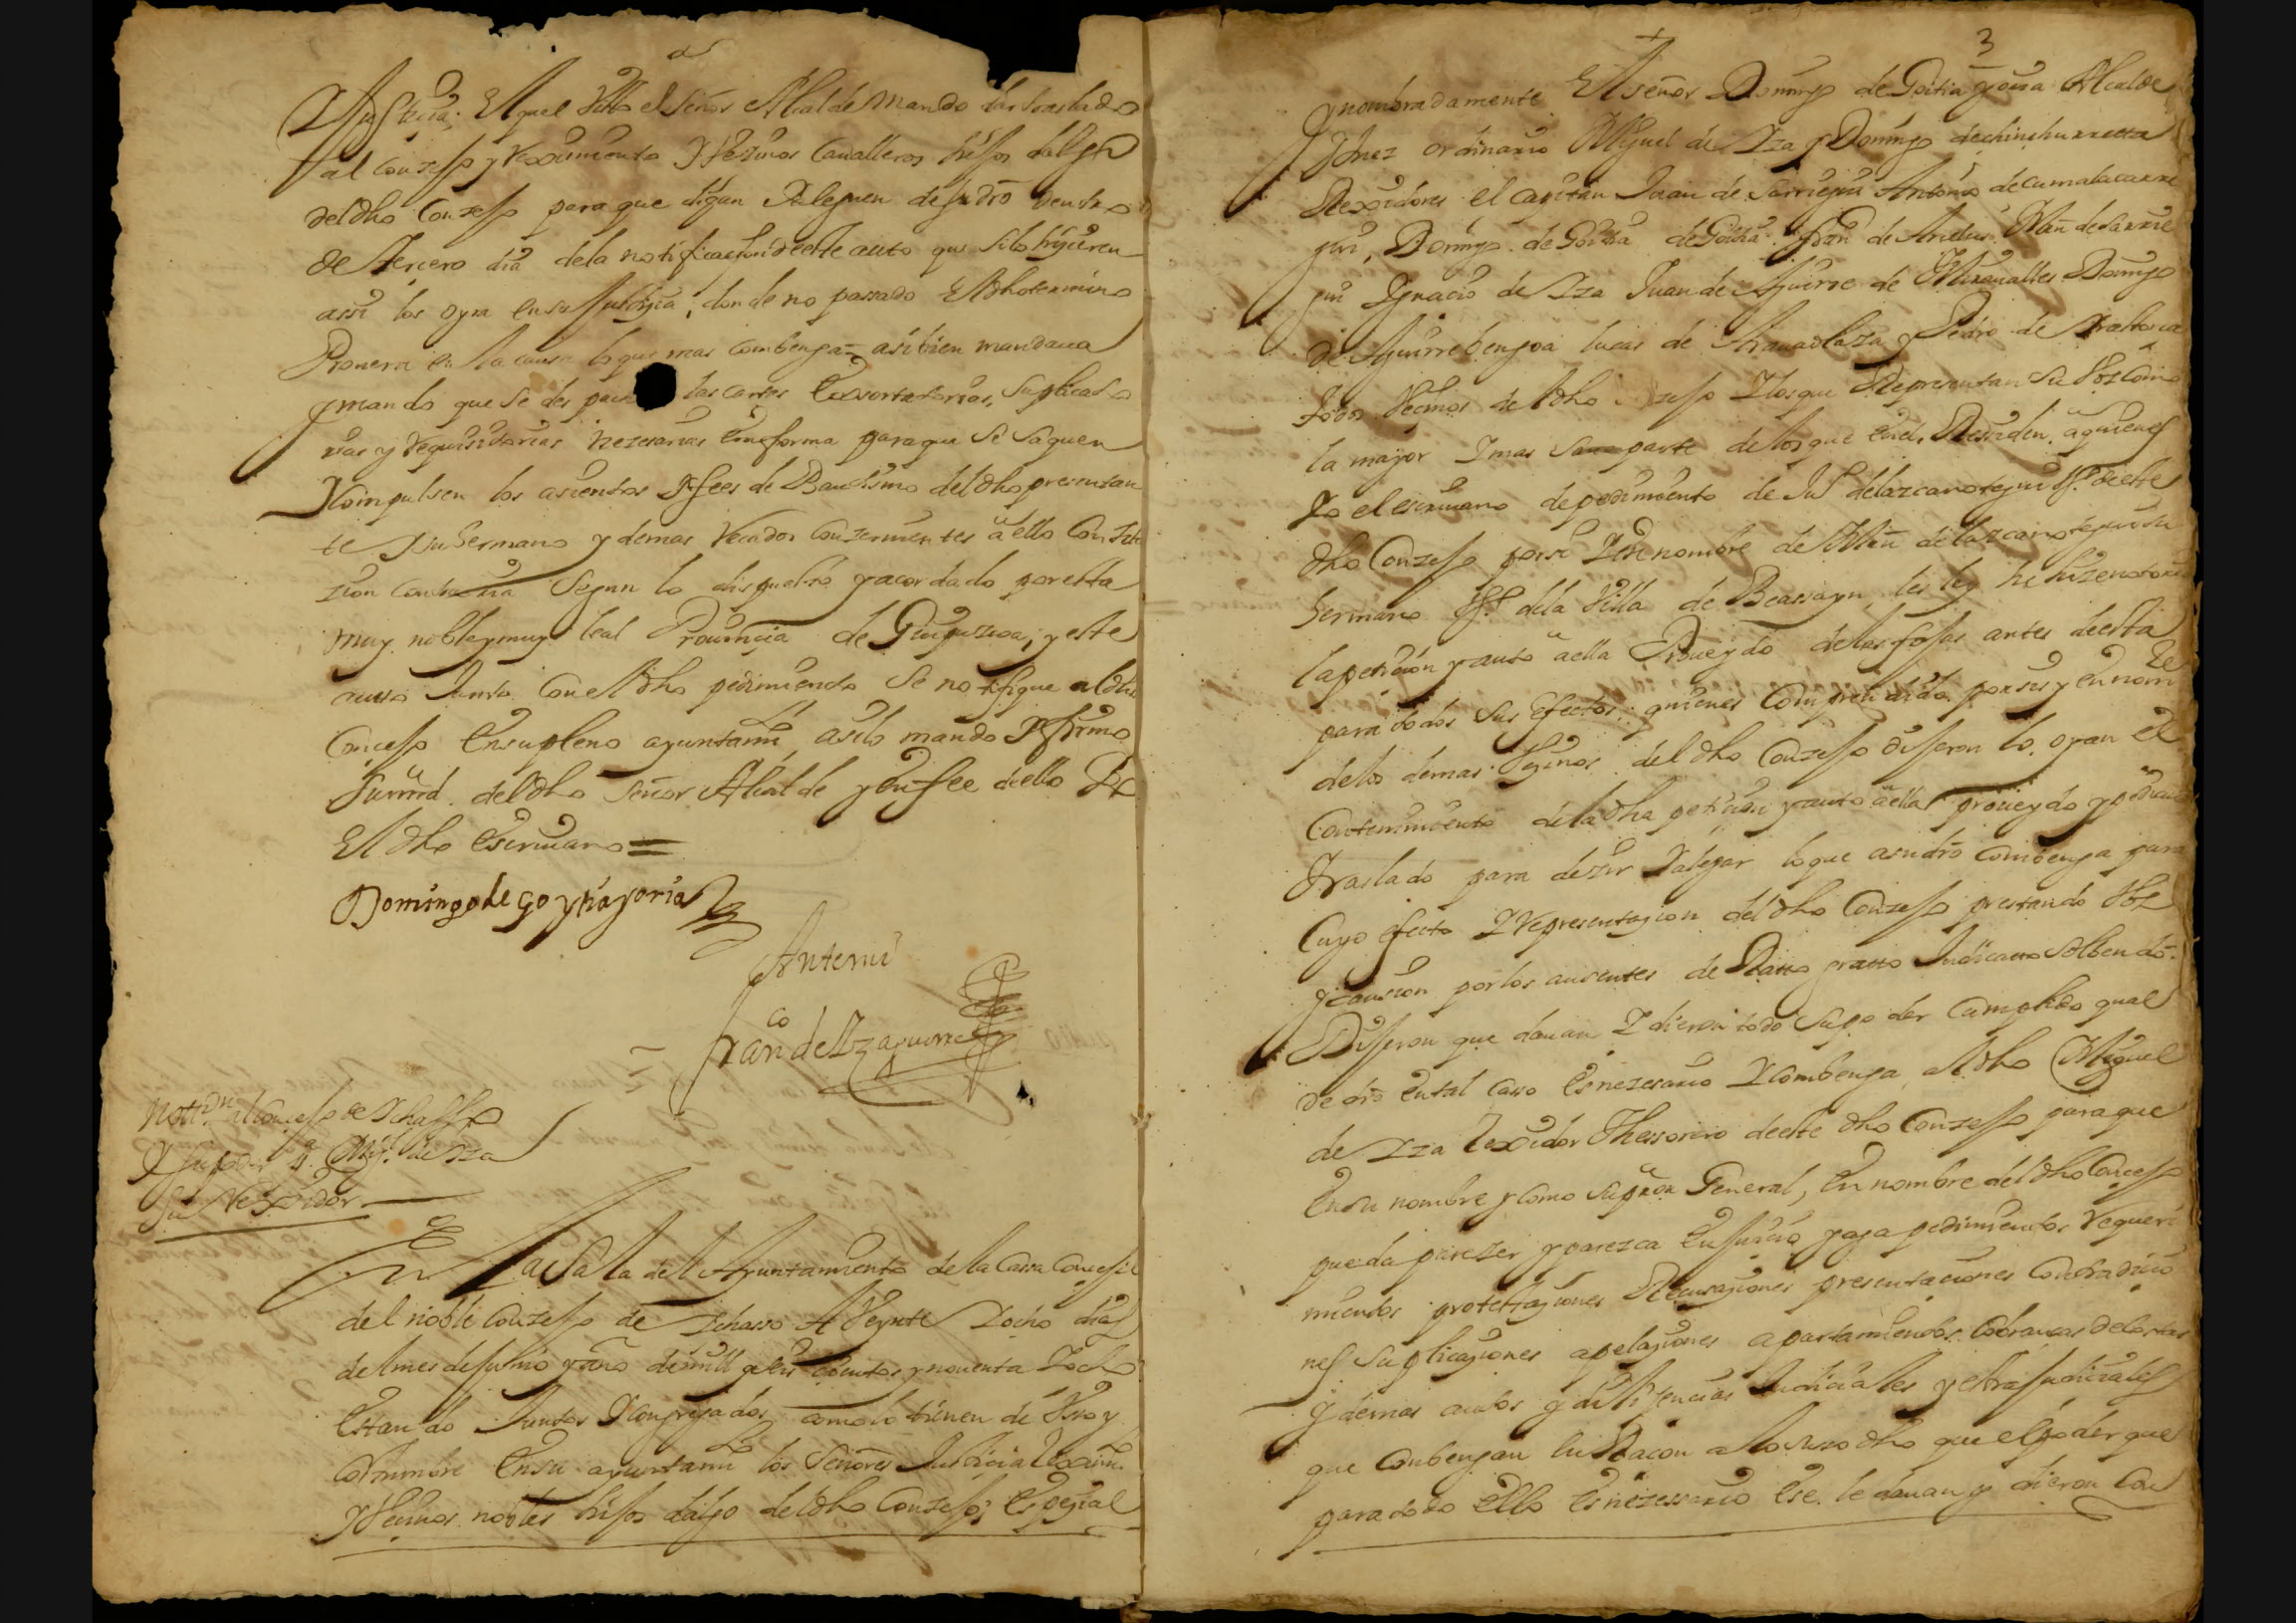 Justicia; El qual Visto el Señor Alcalde mando dar traslado
al conzejo y reximiento y Vezinos Caualleros hijos dalgo
del dho Conzejo para que digan y aleguen de su dro dentro
de tercero dia dela notificacion deeste auto que si lo hizieren
assi los oyra en su Justicia, donde no passado el dho termino
Prouera en la causa lo que mas combenga= assi bien mandaua
y mando que se des pach las cartas exsortatorias, suplicato
rias y requisitorias nezesarias en forma para que se saquen
y compulsen los asientos y fees de Bautismo del dho presentan
te y su hermano y demas recados conzernientes a ello con zita
zion contraria segun lo dispuesto y acordado por esta
muy noble y muy leal Prouinçia de Guipuzcoa; y este
auto Junto con el dho pedimiento se notifique al dho
Concejo en su pleno ayuntamto asi lo mando y firmo
su mrd. del dho señor Alcalde y en fee dello yo
El dho escriuano=
Domingo de goytia y oria
Antemi
Franco de Yzaguirre
Notton al Concejo de Ychasso
y su poder a Migl de Yza
su Rexidor
En La sala del Ayuntamiento de la Cassa Concejil
del noble Conzejo de Ychasso A Veynte y ocho dias
del mes de Junio y año de mill y seis cientos y nouenta y ocho
estando Juntos y Congregados como lo tienen de Vsso y
costumbre en su ayuntamto los Señores Justicia Reximto
y Vecinos nobles hijos dalgo del dho Conzejo; especial
3
y nombradamente El señor Domingo de Goitia y oria Alcalde
y Juez ordinario Miguel de Yza y Domingo de chinchurreta
Rexidores el capitan Juan de Sarriegui Antonio de
Domingo de Goitia de Goitia. Fran de Man de Sarrie
gui Ygnacio de Yza Juan de Aguirre de Domingo
de Aguirrebengoa lucas de y Pedro de
todos Vecinos del dho zejo y los que Representan su Voz como
la mayor y mas sana parte de los que en el Residen. a quienes
yo el escriuano de pedimiento de Ju de lazcanotegui Vo deeste
dho Conzejo por si y en nombre de Min de lazcanotegui su
hermano Vo dela Villa de Beassayn, les ley he hize notoria
la peticion y auto a ella Proueydo delas fojas antes deesta
para todos sus efectos; quienes comprehendido por sus y en nombre
de los demas Vezinos del dho Conzejo dijeron lo oyan el
contenimiento dela dha peticion y auto a ella proueydo y pedian
traslado para dezir y alegar lo que a su dro combenga para
cuyo efecto y representazion del dho Conzejo prestando Voz
y causion por los ausentes de Ratto gratto Judicatto Soluendo.
Dijeron que dauan y dieron todo su poder cumplido qual
de dro en tal caso es nezesario y combenga, al dho Miguel
de Yza rexidor Thessorero deeste dho Conzejo para que
en su nombre y como su pror General, en nombre del dho Concejo
pueda parezer y parezca en Juicio y aga pedimientos requeri
mientos protestaziones Recusaziones presentaciones contradicio
nes suplicaziones apelaziones apartamientos cobranzas de
y demas autos y diligencias Judiciales y extrajudiciales
que conbengan en Racon a lo susodho que el poder que
para todo ello es nezessario ese le dauan y dieron con